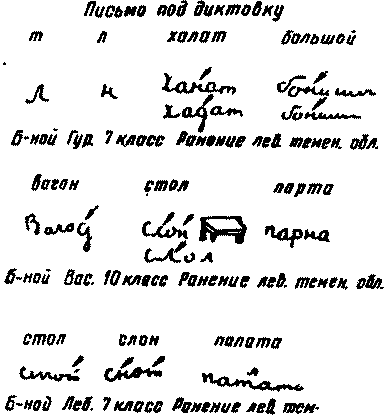 Письмо под диктовку
т л халат большой
л н Ханат бонишь
Хадат бониш
Б-ной Гур. 7 класс Ранение лев. темен. обл.
вагон стол парта
Слой парна
слол
Б-ной Вас. 10 класс Ранение лев. темен. обл.
стол слон палата
спой снот патата
Б-ной Леб. 7 класс Ранение лев. тем-